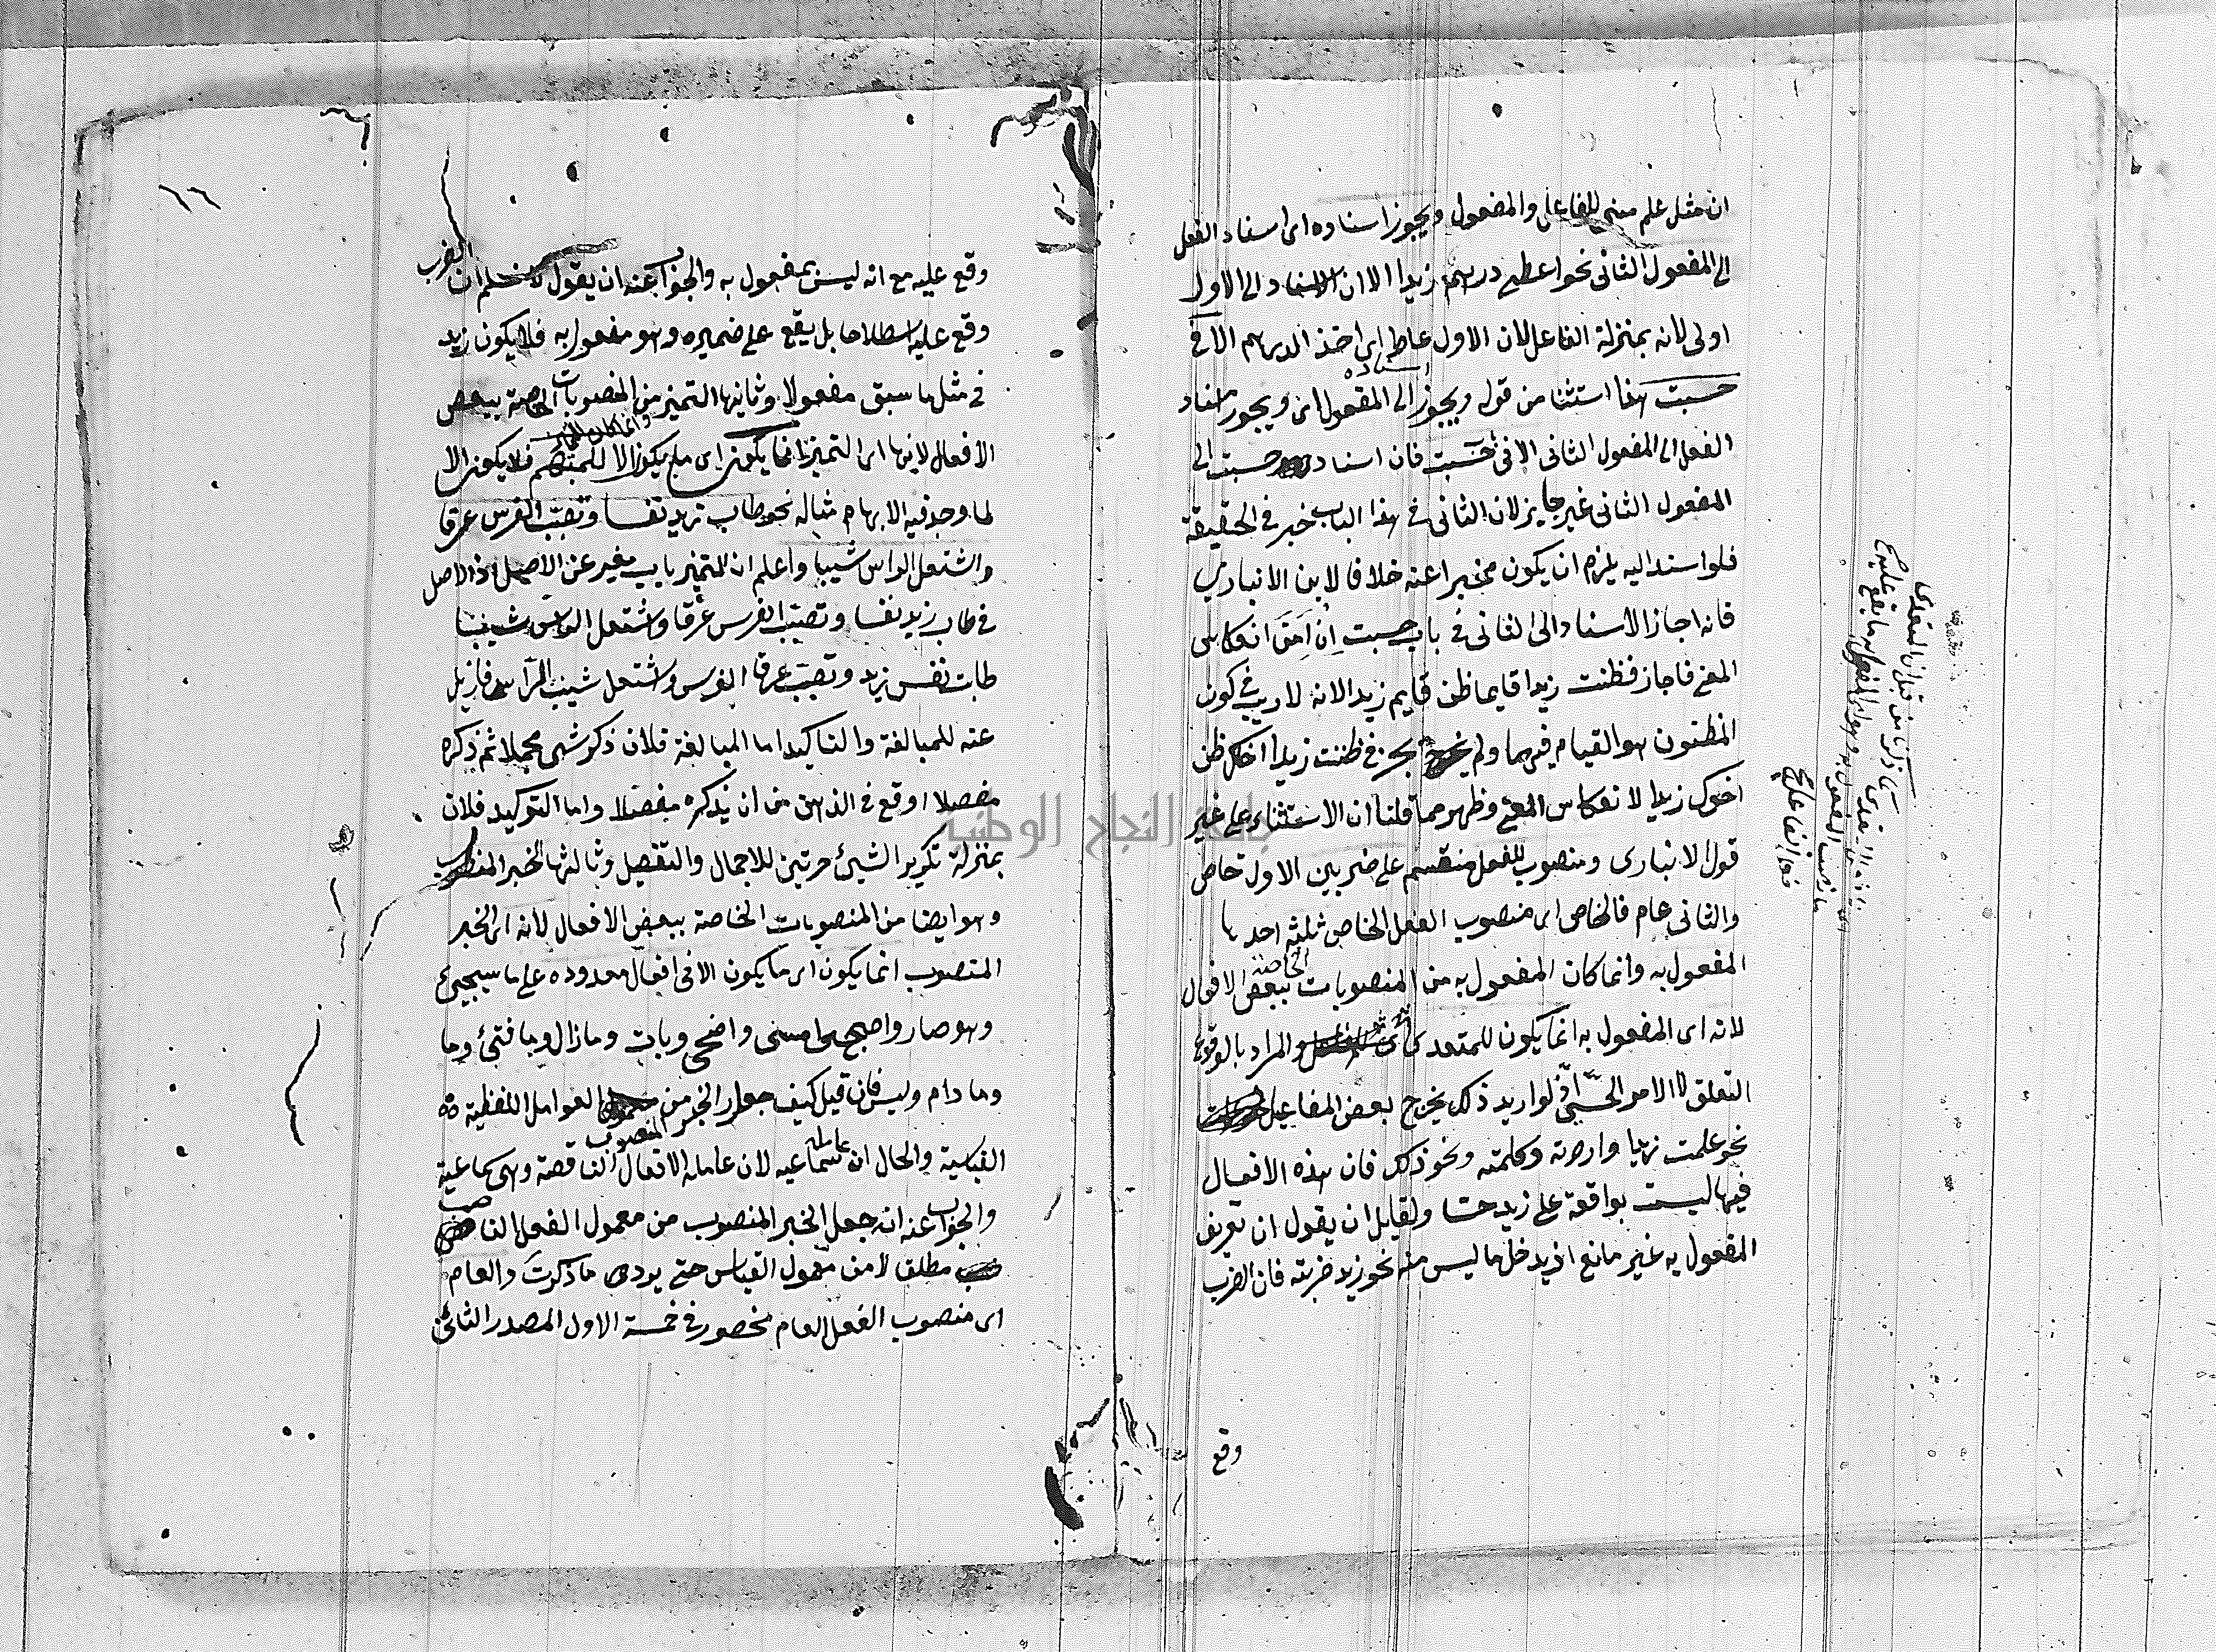 ان مثل علم مبنى للفاعل والمفعول ويجوز اسناده اى اسناد الفعل
الى المفعول الثانى نحو اعطى درهم زيدا الا ان الاسناد الى الاول
اولى لانه بمنزلة الفاعل لان الاول عاطى اى اخذ الدرهم الا فى
حسبت هذا استثنا من قوله ويجوز اسناده الى المفعول اى ويجوز اسناد
الفعل الى المفعول الثانى الا فى حسبت فان اسناد حسبت الى
المفعول الثانى غير جايز لان الثانى فى هذا الباب خبر فى الحقيقة
فلو اسند اليه يلزم ان يكون مخبرا عنه خلافا لابن الانبارى
فانه اجاز الاسناد الى الثانى فى باب حسبت ان امن انعكاس
المعنى فاجاز فظننت زيدا قايما ظن قايم زيدا لانه لا ريب فى كون
المظنون هو القيام فيهما ولم يجز فى ظننت زيدا اخاك ظن
اخوك زيدا لانعكاس المعنى وظهر مما قلنا ان الاستثناء على غير
قول الانبارى ومنصوب الفعل منقسم على ضربين الاول خاص
والثانى عام فالخاص اى منصوب الفعل الخاص ثلثة احدها
المفعول به وانما كان المفعول به من المنصوبات الخاصة ببعض الافعال
لانه اى المفعول به انما يكون للمتعدى والمراد بالوقوع
التعلق لا الامر الحسّى اذ لو اريد ذلك يخرج بعض المفاعيل
نحو علمت زيدا واردته وكلمته ونحو ذلك فان هذه الافعال
فيها ليست بواقعة على زيد حسّا ولقايل ان يقول ان تعريف
المفعول به غير مانع اذ يدخل ما ليس منه نحو زيد ضربته فان الضرب
وقع
١٦
وقع عليه مع انه ليس بمفعول به والجواب عنه ان يقول لا نسلم ان الضرب
وقع عليه اصطلاحا بل يقع على ضميره وهو مفعول به فلا يكون زيد
فى مثل ما سبق مفعولا وثانيها التميز من المنصوبات الخاصة ببعض
الافعال لانها اى التميز انما يكون اى ما يكون الا للمبهم فلا يكون الا
لما وجد فيه الابهام مثاله نحو طاب زيد نفسا وتصبّب الفرس عرقا
واشتعل الراس شيبا واعلم ان التميز باب مغير عن الاصل اذ الاصل
فى طاب زيد نفسا وتصبب الفرس عرقا واشتعل الراس شيبا
طابت نفس زيد وتصبب عرق الفرس واشتعل شيب الرأس فازيل
عنه للمبالغة والتاكيد اما المبالغة فلان ذكر شى مجملا ثم ذكره
مفصلا اوقع فى الذهن من ان يذكره مفصلا واما التوكيد فلان
بمنزلة تكرير الشيئ مرتين للاجمال والتفصيل وثالثها الخبر المنصوب
وهو ايضا من المنصوبات الخاصة ببعض الافعال لأنه اى الخبر
المنصوب انما يكون اى ما يكون الا فى افعال معدوده على ما سيجيئ
وهو صار واصبح وامسى واضحى وبات وما زال وما فتئ وما
وما دام وليس فان قيل كيف جعل الخبر المنصوب من العوامل اللفظية
القياسية والحال ان عامله سماعيه لان عامله الافعال الناقصة وهى سماعية
والجواب عنه ان جعل الخبر المنصوب من معمول الفعل الناصب
مطلقا لا من معمول القياس حتى يرد ما ذكرت والعام
اى منصوب الفعل العام مخصور فى خمسة الاول المصدر الثانى